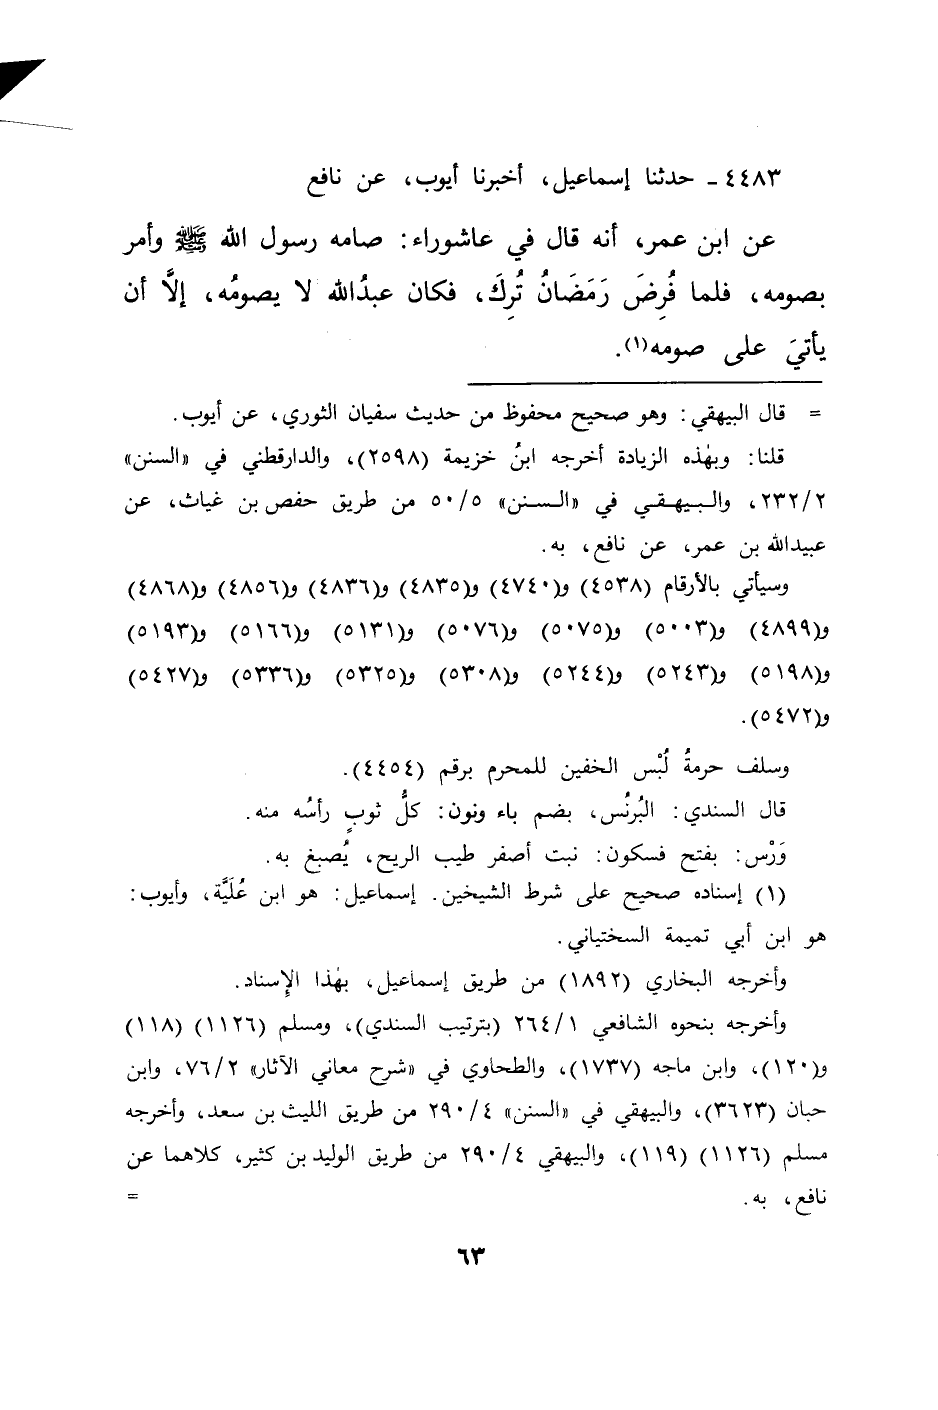 ٤٤٨٣ - حدثنا إسماعيل، أخبرنا أيوب، عن نافع
عن ابن عمر، أنه قال في عاشوراء: صامه رسول الله ﷺ وأمر
بصومه، فلما فُرِضَ رَمَضَانُ تُرِكَ، فكان عبدُالله لا يصومُه، إلاَّ أن
يأتيَ على صومه(١).
= قال البيهقي: وهو صحيح محفوظ من حديث سفيان الثوري، عن أيوب.
قلنا: وبهٰذه الزيادة أخرجه ابنُ خزيمة (٢٥٩٨)، والدارقطني في «السنن»
٢٣٢/٢، والبيهقي في «السنن» ٥٠/٥ من طريق حفص بن غياث، عن
عبيدالله بن عمر، عن نافع، به.
وسيأتي بالأرقام (٤٥٣٨) و(٤٧٤٠) و(٤٨٣٥) و(٤٨٣٦) و(٤٨٥٦) و(٤٨٦٨)
و(٤٨٩٩) و(٥٠٠٣) و(٥٠٧٥) و(٥٠٧٦) و(٥١٣١) و(٥١٦٦) و(٥١٩٣)
و(٥١٩٨) و(٥٢٤٣) و(٥٢٤٤) و(٥٣٠٨) و(٥٣٢٥) و(٥٣٣٦) و(٥٤٢٧)
و(٥٤٧٢).
وسلف حرمةُ لُبْس الخفين للمحرم برقم (٤٤٥٤).
قال السندي: البُرنُس، بضم باء ونون: كلُّ ثوبٍ رأسُه منه.
وَرْس: بفتح فسكون: نبت أصفر طيب الريح، يُصبغ به.
(١) إسناده صحيح على شرط الشيخين. إسماعيل: هو ابن عُلَيَّة، وأيوب:
هو ابن أبي تميمة السختياني.
وأخرجه البخاري (١٨٩٢) من طريق إسماعيل، بهٰذا الإسناد.
وأخرجه بنحوه الشافعي ٢٦٤/١ (بترتيب السندي)، ومسلم (١١٢٦) (١١٨)
و(١٢٠)، وابن ماجه (١٧٣٧)، والطحاوي في «شرح معاني الآثار» ٧٦/٢، وابن
حبان (٣٦٢٣)، والبيهقي في «السنن» ٢٩٠/٤ من طريق الليث بن سعد، وأخرجه
مسلم (١١٢٦) (١١٩)، والبيهقي ٢٩٠/٤ من طريق الوليد بن كثير، كلاهما عن
نافع، به. =
٦٣